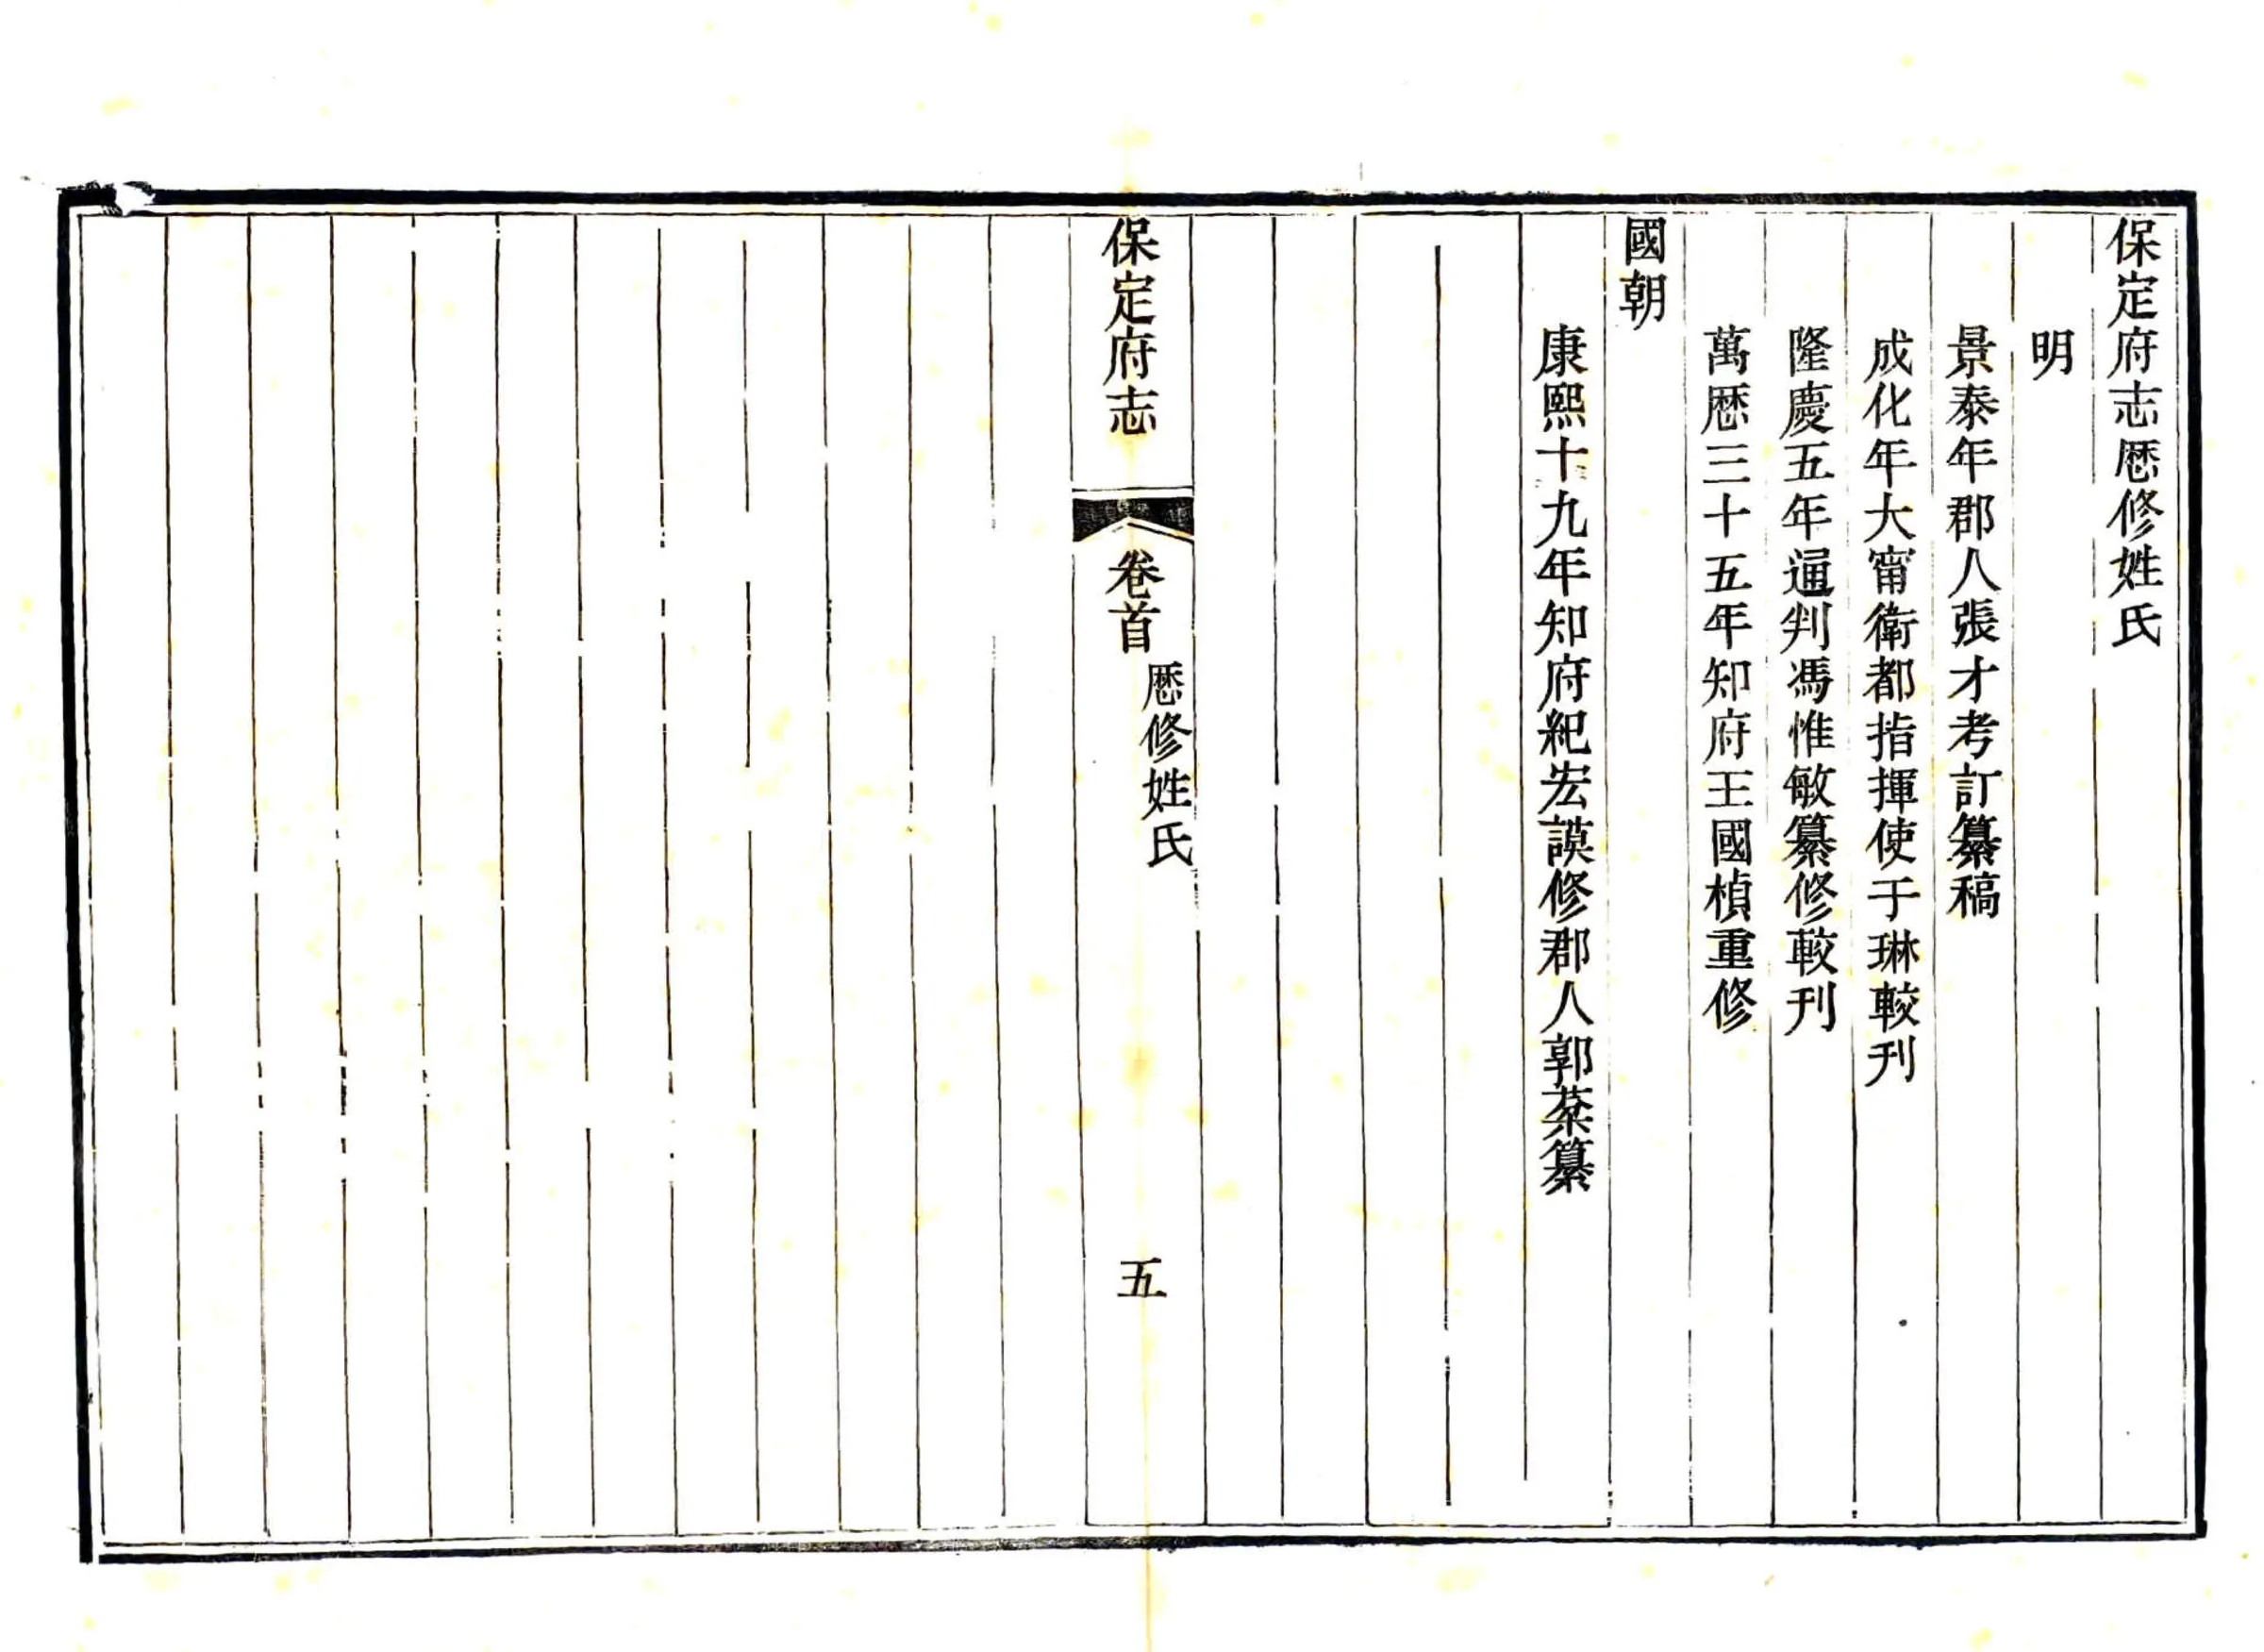 保定府志厯修姓氏
明
景泰年郡人張才考訂纂稿
成化年大甯衛都指揮使于琳較刊
隆慶五年通判馮惟敏纂修較刊
萬厯三十五年知府王國楨重修
國朝
康熙十九年知府紀宏謨修郡人郭棻纂
保定府志
卷首
厯修姓氏
五